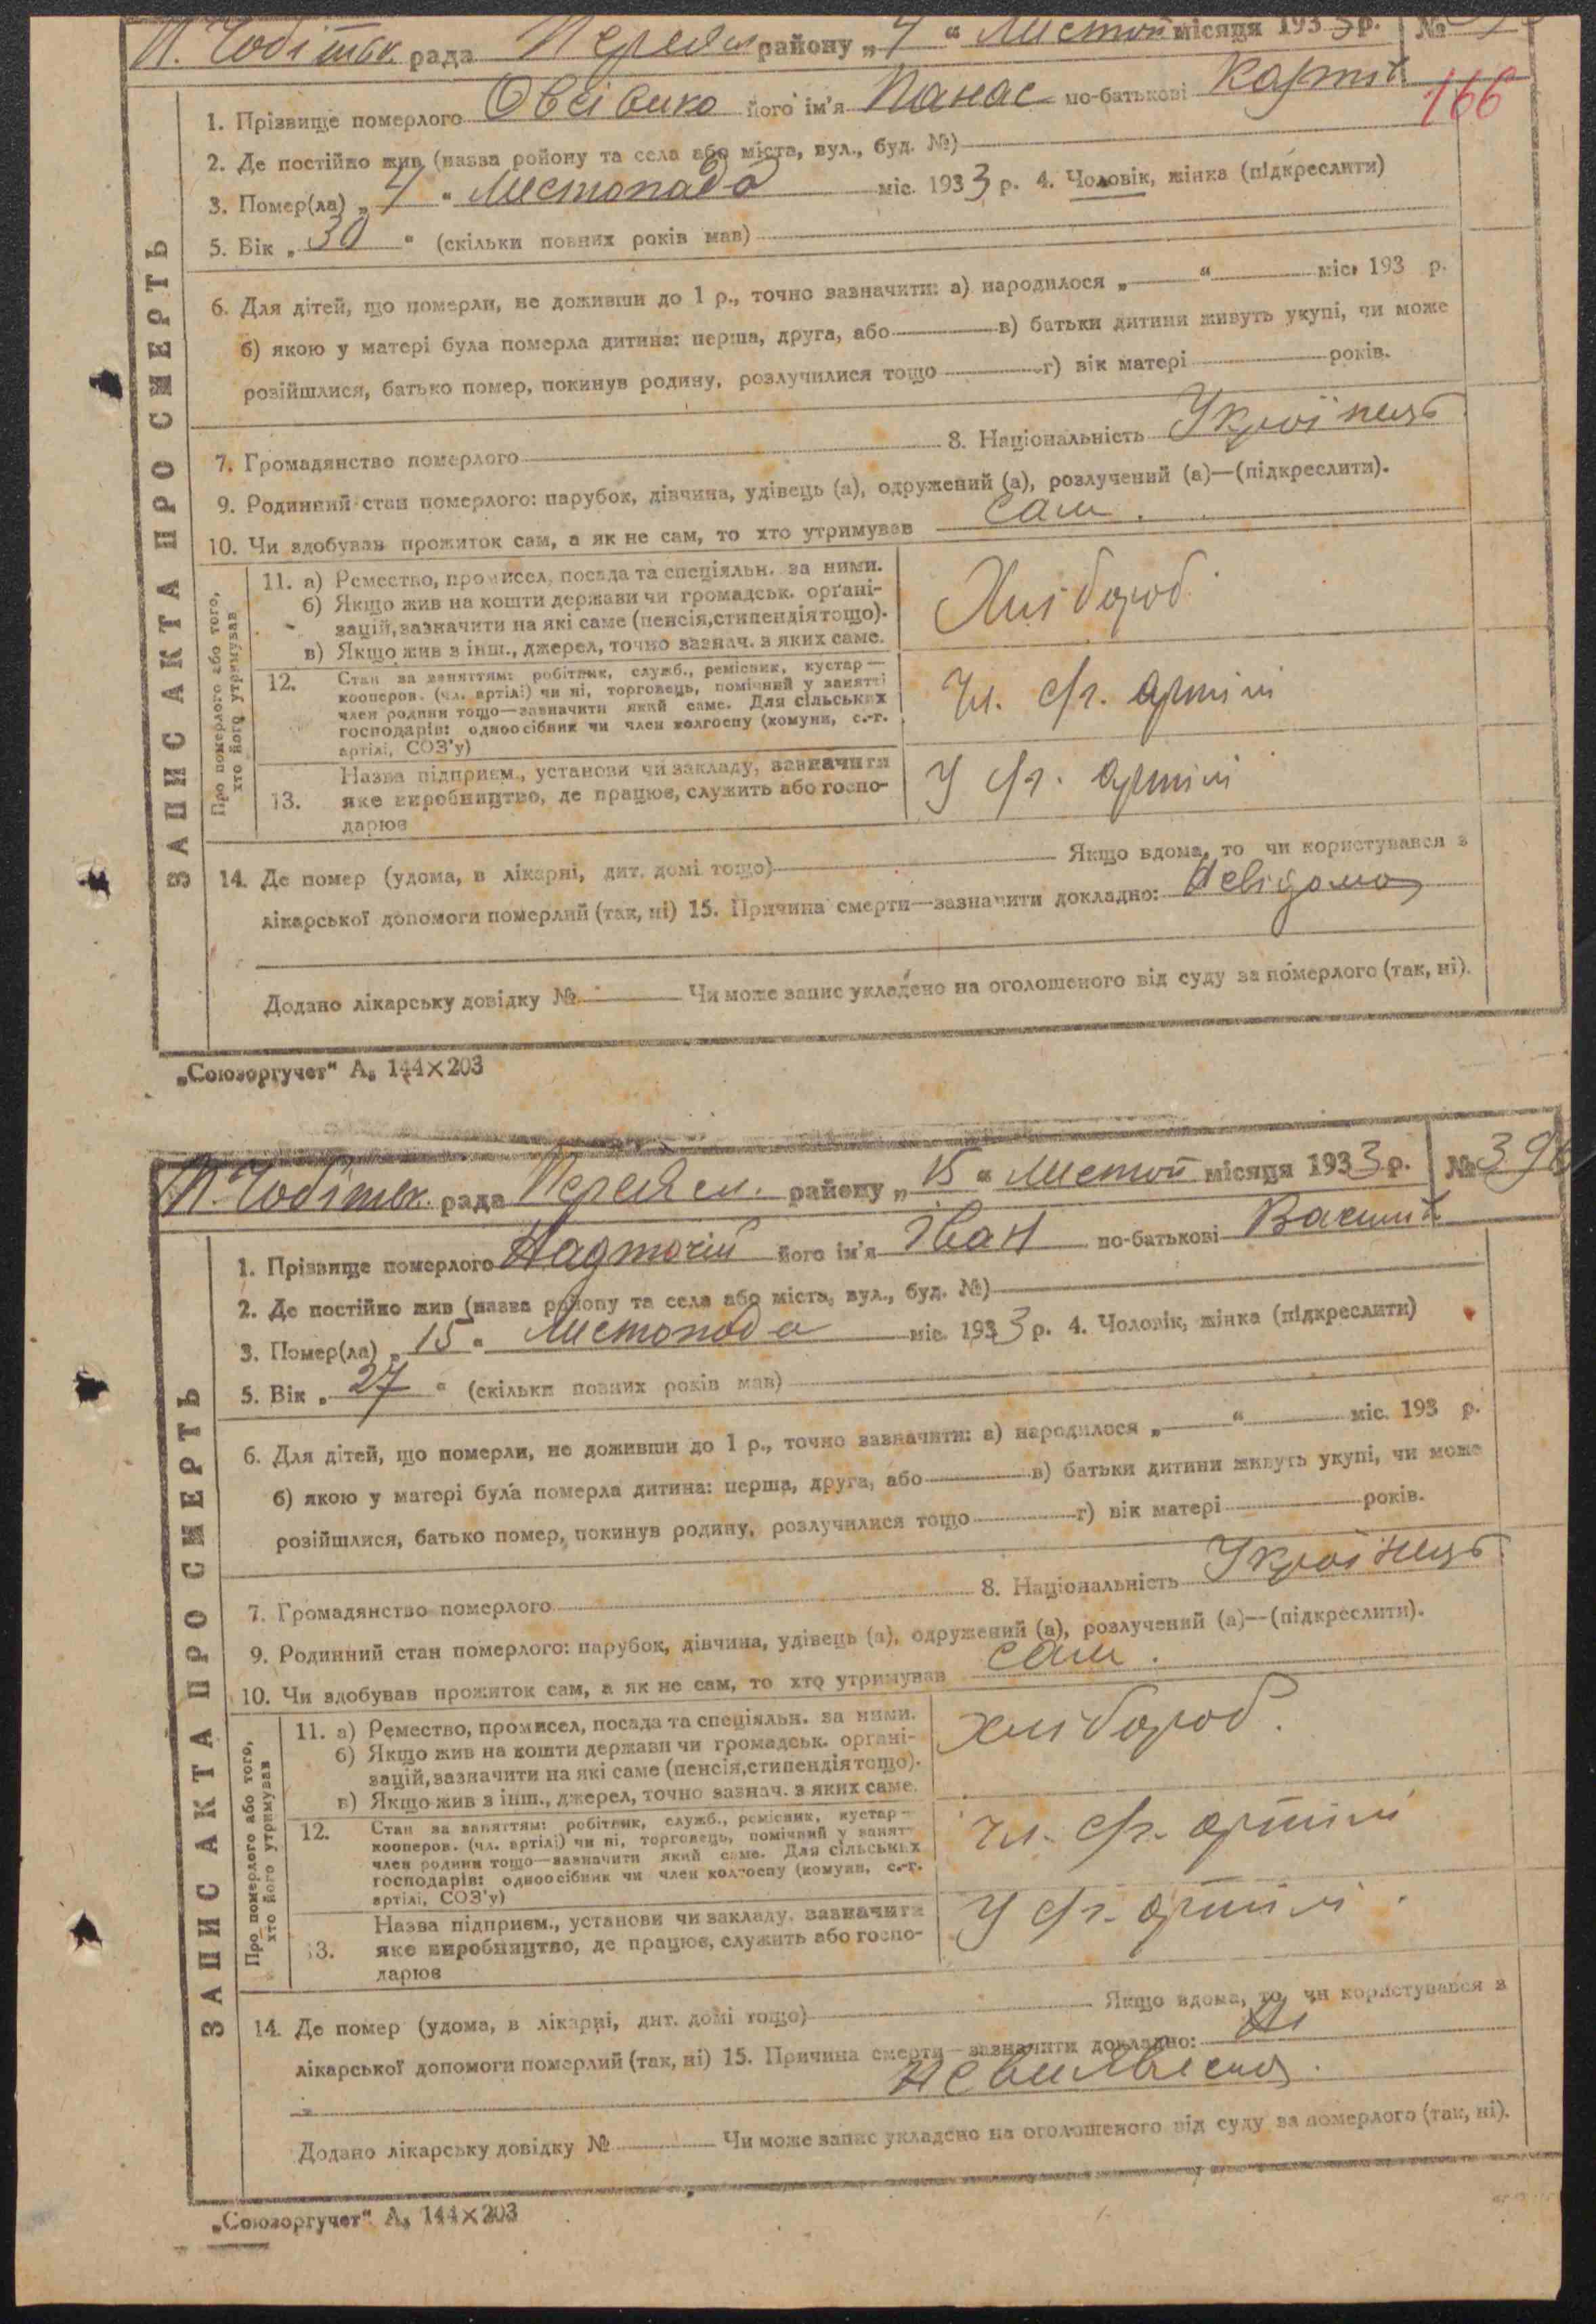 П. Чобітьк. рада Переясл району „4“ Листоп місяця 1933 р. №
166
1. Прізвище померлого Овсієнко його ім'я Панас по-батькові Карпів
2. Де постійно жив (назва ройону та села або міста, вул., буд. №)
3. Помер(ла) „4“ Листопада міс. 1933 р. 4. Чоловік, жінка (підкреслити)
5. Вік „30“ (скільки повних років мав)
6. Для дітей, що померли, не доживши до 1 р., точно зазначити: а) народилося „ “ міс. 193 р.
б) якою у матері була померла дитина: перша, друга, або в) батьки дитини живуть укупі, чи може
розійшлися, батько помер, покинув родину, розлучилися тощо г) вік матері років.
7. Громадянство померлого 8. Національність Українець
9. Родинний стан померлого: парубок, дівчина, удівець (а), одружений (а), розлучений (а)—(підкреслити).
10. Чи здобував прожиток сам, а як не сам, то хто утримував сам.
ЗАПИС АКТА ПРО СМЕРТЬ
Про померлого або того,
хто його утримував
11. а) Ремество, промисел, посада та спеціяльн. за ними.
б) Якщо жив на кошти держави чи громадськ. орґані-
зацій, зазначити на які саме (пенсія, стипендія тощо).
в) Якщо жив з інш., джерел, точно зазнач. з яких саме.
Хлібороб.
12. Стан за заняттям: робітник, служб., ремісник, кустар—
кооперов. (чл. артілі) чи ні, торговець, помічний у занятті
член родини тощо—зазначити який саме. Для сільських
господарів: одноосібник чи член колгоспу (комуни, с.-г.
артілі, СОЗ'у)
Чл. с/г. артілі
13. Назва підприєм., установи чи закладу, зазначити
яке виробництво, де працює, служить або госпо-
дарює
У с/г. артілі
14. Де помер (удома, в лікарні, дит. домі тощо) Якщо вдома, то чи користувався з
лікарської допомоги померлий (так, ні) 15. Причина смерти—зазначити докладно: Невідома
Додано лікарську довідку № Чи може запис укладено на оголошеного від суду за померлого (так, ні).
„Союзоргучет“ А₅ 144×203
П. Чобітьк. рада Переясл. району „15“ Листоп місяця 1933 р. № 398
1. Прізвище померлого Надточій його ім'я Іван по-батькові Васильів
2. Де постійно жив (назва ройону та села або міста, вул., буд. №)
3. Помер(ла) „15“ Листопада міс. 1933 р. 4. Чоловік, жінка (підкреслити)
5. Вік „27“ (скільки повних років мав)
6. Для дітей, що померли, не доживши до 1 р., точно зазначити: а) народилося „ “ міс. 193 р.
б) якою у матері була померла дитина: перша, друга, або в) батьки дитини живуть укупі, чи може
розійшлися, батько помер, покинув родину, розлучилися тощо г) вік матері років.
7. Громадянство померлого 8. Національність Українець
9. Родинний стан померлого: парубок, дівчина, удівець (а), одружений (а), розлучений (а)—(підкреслити).
10. Чи здобував прожиток сам, а як не сам, то хто утримував сам.
ЗАПИС АКТА ПРО СМЕРТЬ
Про померлого або того,
хто його утримував
11. а) Ремество, промисел, посада та спеціяльн. за ними.
б) Якщо жив на кошти держави чи громадськ. орґані-
зацій, зазначити на які саме (пенсія, стипендія тощо).
в) Якщо жив з інш., джерел, точно зазнач. з яких саме.
хлібороб.
12. Стан за заняттям: робітник, служб., ремісник, кустар—
кооперов. (чл. артілі) чи ні, торговець, помічний у занят-
член родини тощо—зазначити який саме. Для сільських
господарів: одноосібник чи член колгоспу (комуни, с.-г.
артілі, СОЗ'у)
Чл. с/г. артілі
13. Назва підприєм., установи чи закладу, зазначити
яке виробництво, де працює, служить або госпо-
дарює
У с/г. артілі.
14. Де помер (удома, в лікарні, дит. домі тощо) Якщо вдома, то чи користувався з
лікарської допомоги померлий (так, ні) 15. Причина смерти—зазначити докладно: Ні
Додано лікарську довідку № Чи може запис укладено на оголошеного від суду за померлого (так, ні).
„Союзоргучет“ А₅ 144×203